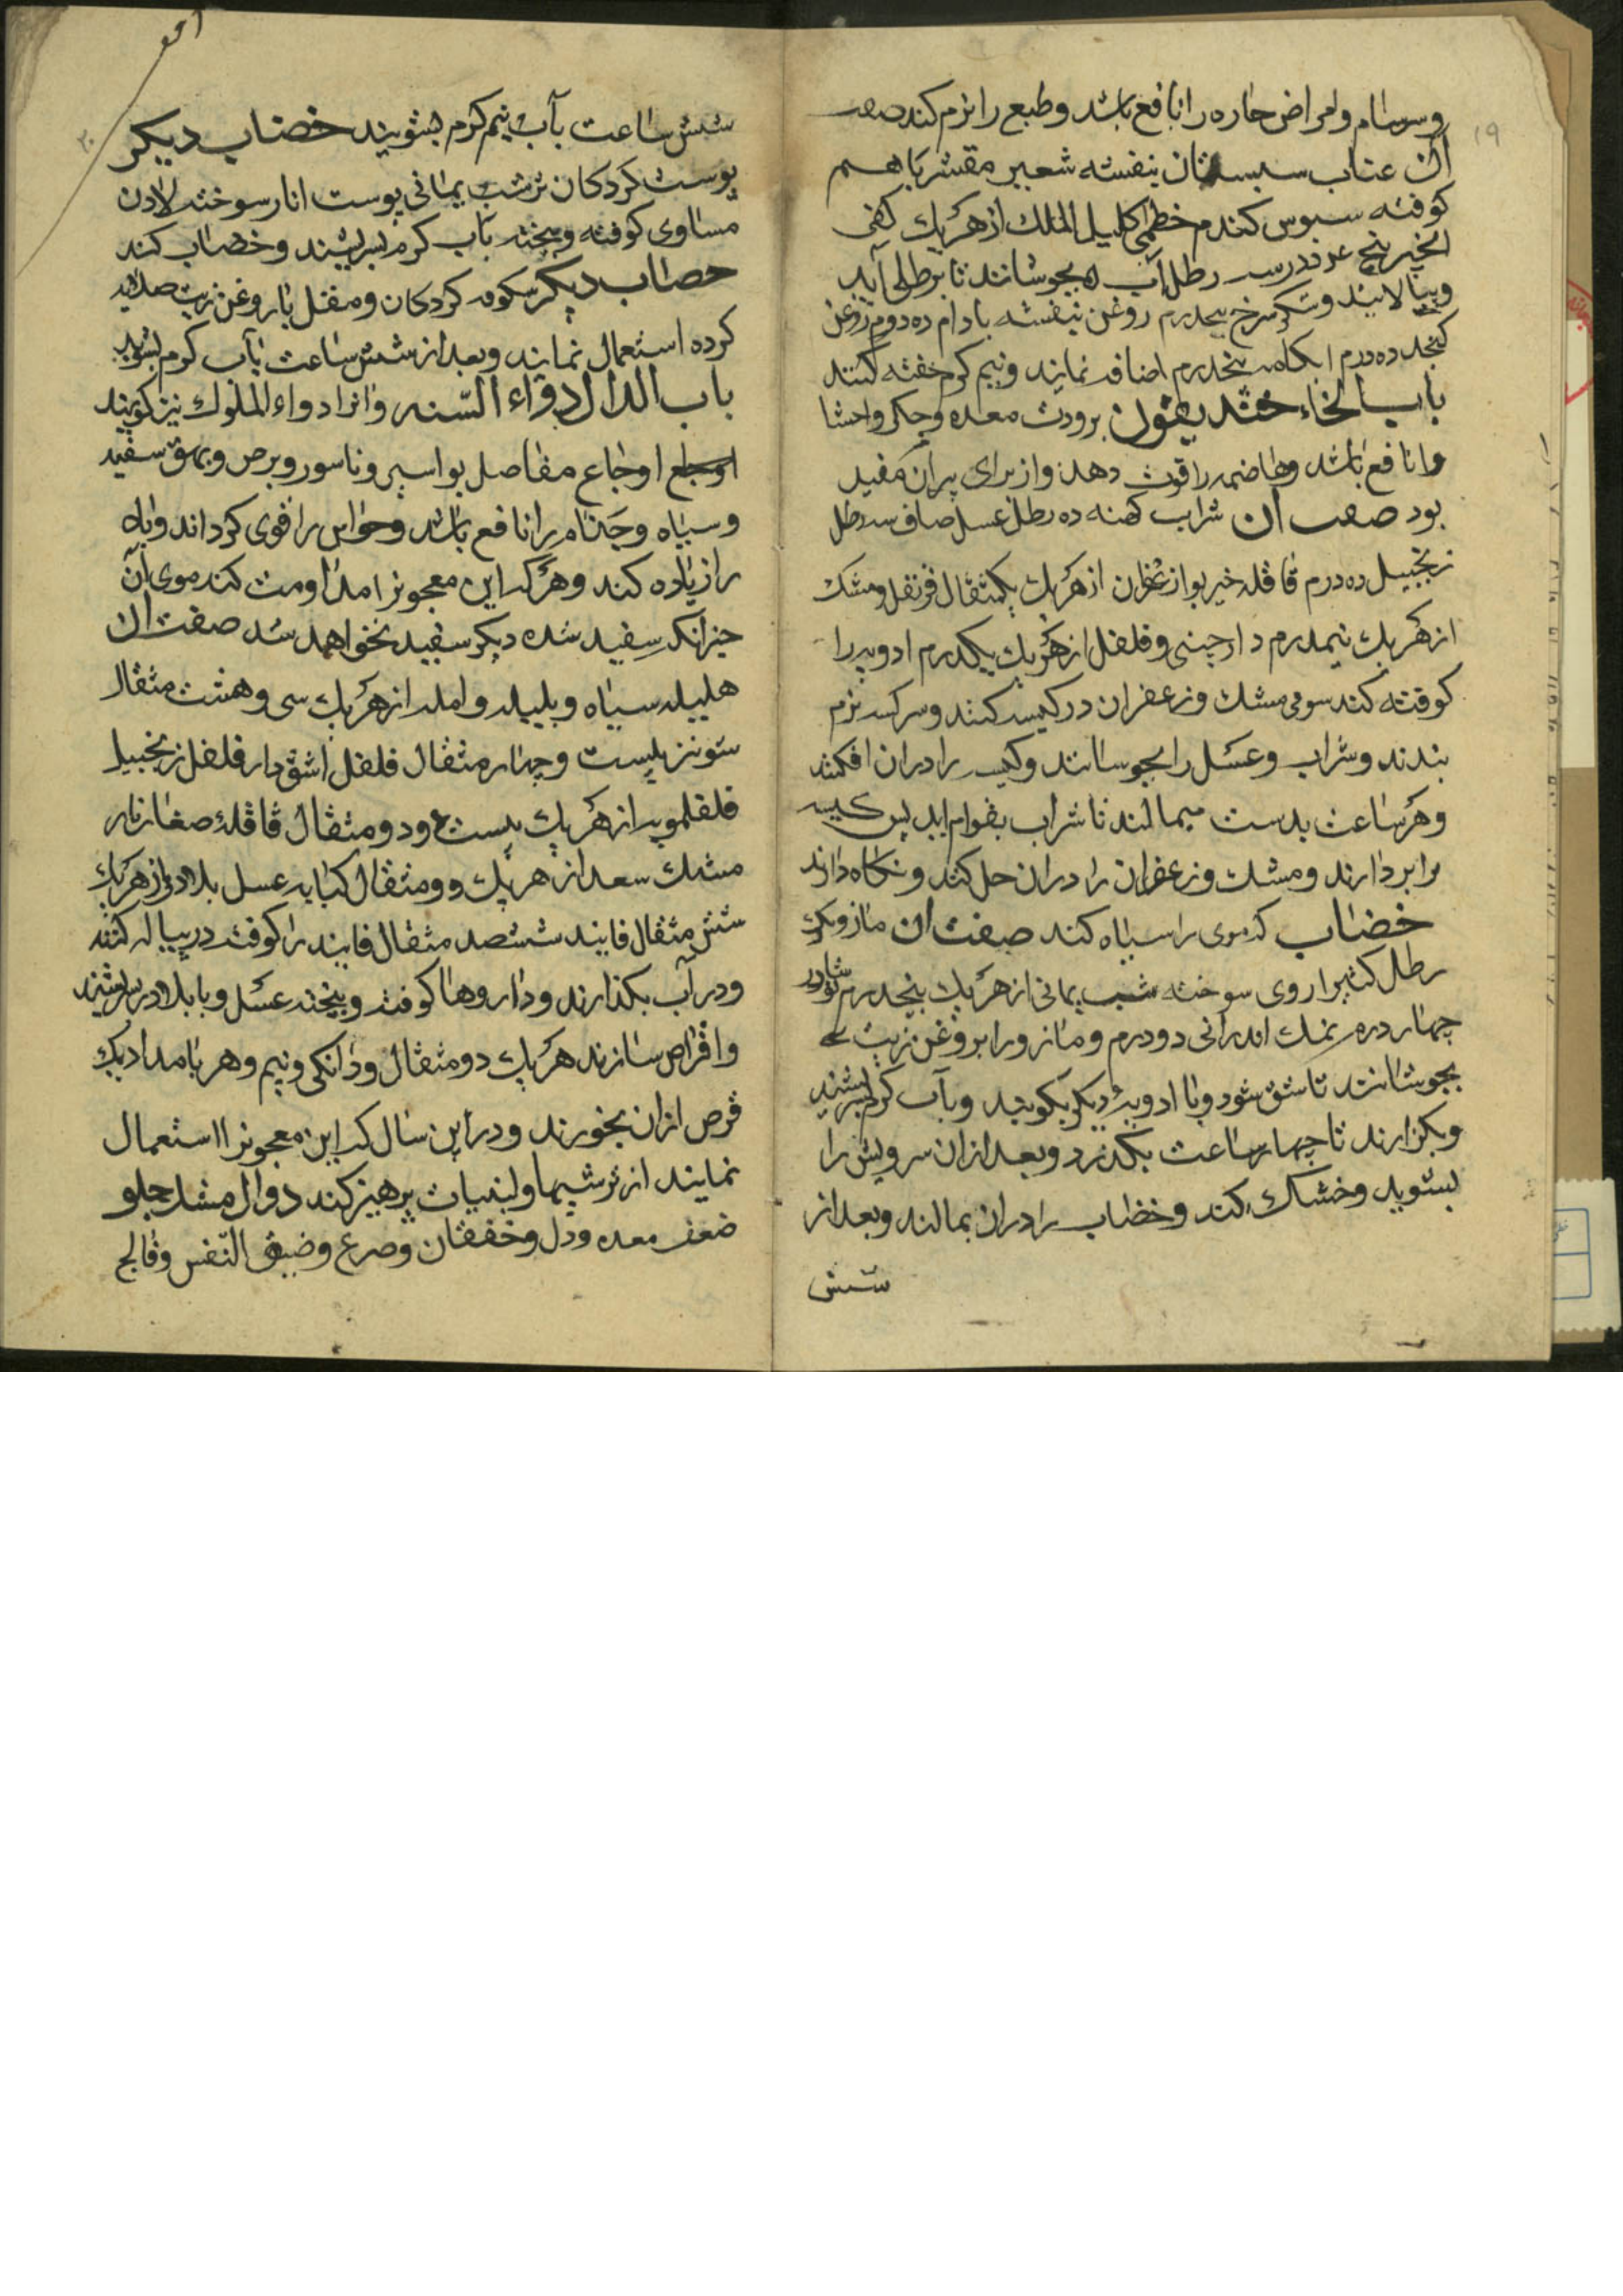 ۱۹
وسرسام وامراض حاره را نافع باشد وطبع را نرم کند صفت
آن عناب سبستان بنفشه شعیر مقشر با هم
کوفته سبوس کندم خطمی اکلیل الملک از هر یک کفی
انجیر پنج عدد در سه رطل آب بجوشانند تا برطلی آید
وبپالایند وشکر سرخ پنجدرم روغن بنفشه بادام ده درم روغن
کنجد ده درم ابکامه پنجدرم اضافه نمایند ونیم کرم حقنه کنند
باب الخاء خندیقون برودت معده وجکر واحشا
را نافع باشد وهاضمه را قوت دهد واز برای پیران مفید
بود صفت آن شراب کهنه ده رطل عسل صاف سه رطل
زنجبیل ده درم قاقله خیربوا زعفران از هر یک یکمثقال قرنفل ومشک
از هر یک نیمدرم دارچینی وفلفل از هر یک یکدرم ادویه را
کوفته کنند سوی مشک وزعفران در کیسه کنند وسر کیسه نرم
بندند وشراب وعسل را بجوشانند وکیسه را در آن افکنند
وهر ساعت بدست میمالند تا شراب بقوام آید پس کیسه
را بردارند ومشک وزعفران را در آن حل کنند ونکاه دارند
خضاب که موی را سیاه کند صفت آن مازو یک
رطل کتیرا روی سوخته شب یمانی از هر یک پنجدرم نوشادر
چهار درم نمک اندرانی دو درم ومازو را بروغن زیت
بجوشانند تا شق شود وبا ادویهٔ دیکر بکوبند وبآب کرم بسرشند
وبکزارند تا چهار ساعت بکذرد وبعد از آن سر وریش را
بشوید وخشک کند وخضاب را در آن بمالند وبعد از
شش
۲۰
شش ساعت بآب نیم کرم بشویند خضاب دیکر
پوست کردکان تر شب یمانی پوست انار سوخته لادن
مساوی کوفته وبیخته بآب کرم بسریشند وخضاب کند
خضاب دیکر شکوفه کردکان ومقل با روغن زیت صلایه
کرده استعمال نمایند وبعد از شش ساعت بآب کرم بشوید
باب الدال دواء السنه وانرا دواء الملوک نیز کویند
اوجاع مفاصل بواسیر وناسور وبرص وبهق سفید
وسیاه وجذام را نافع باشد وحواس را قوی کرداند وباه
را زیاده کند وهر که این معجونرا مداومت کند موی آن
جز آنکه سفید شده دیکر سفید نخواهد شد صفت آن
هلیله سیاه وبلیله وامله از هر یک سی وهشت مثقال
شونیز بیست وچهار مثقال فلفل اشق دارفلفل زنجبیل
فلفلمویه از هر یک بیست ودو مثقال قاقله صغار نار
مشک سعد از هر یک دو مثقال کبابه عسل بلادر از هر یک
شش مثقال فانید ششصد مثقال فانید را کوفته در پیاله کنند
ودر آب بکذارند وداروها کوفته وبیخته عسل وبا بلادر بسرشند
واقراص سازند هر یک دو مثقال ودانکی ونیم وهر بامداد یک
قرص ازان بخورند ودر این سال که این معجونرا استعمال
نمایند از ترشیها ولبنیات پرهیز کند دواء المشک حلو
ضعف معده ودل وخفقان وصرع وضیق النفس وفالج